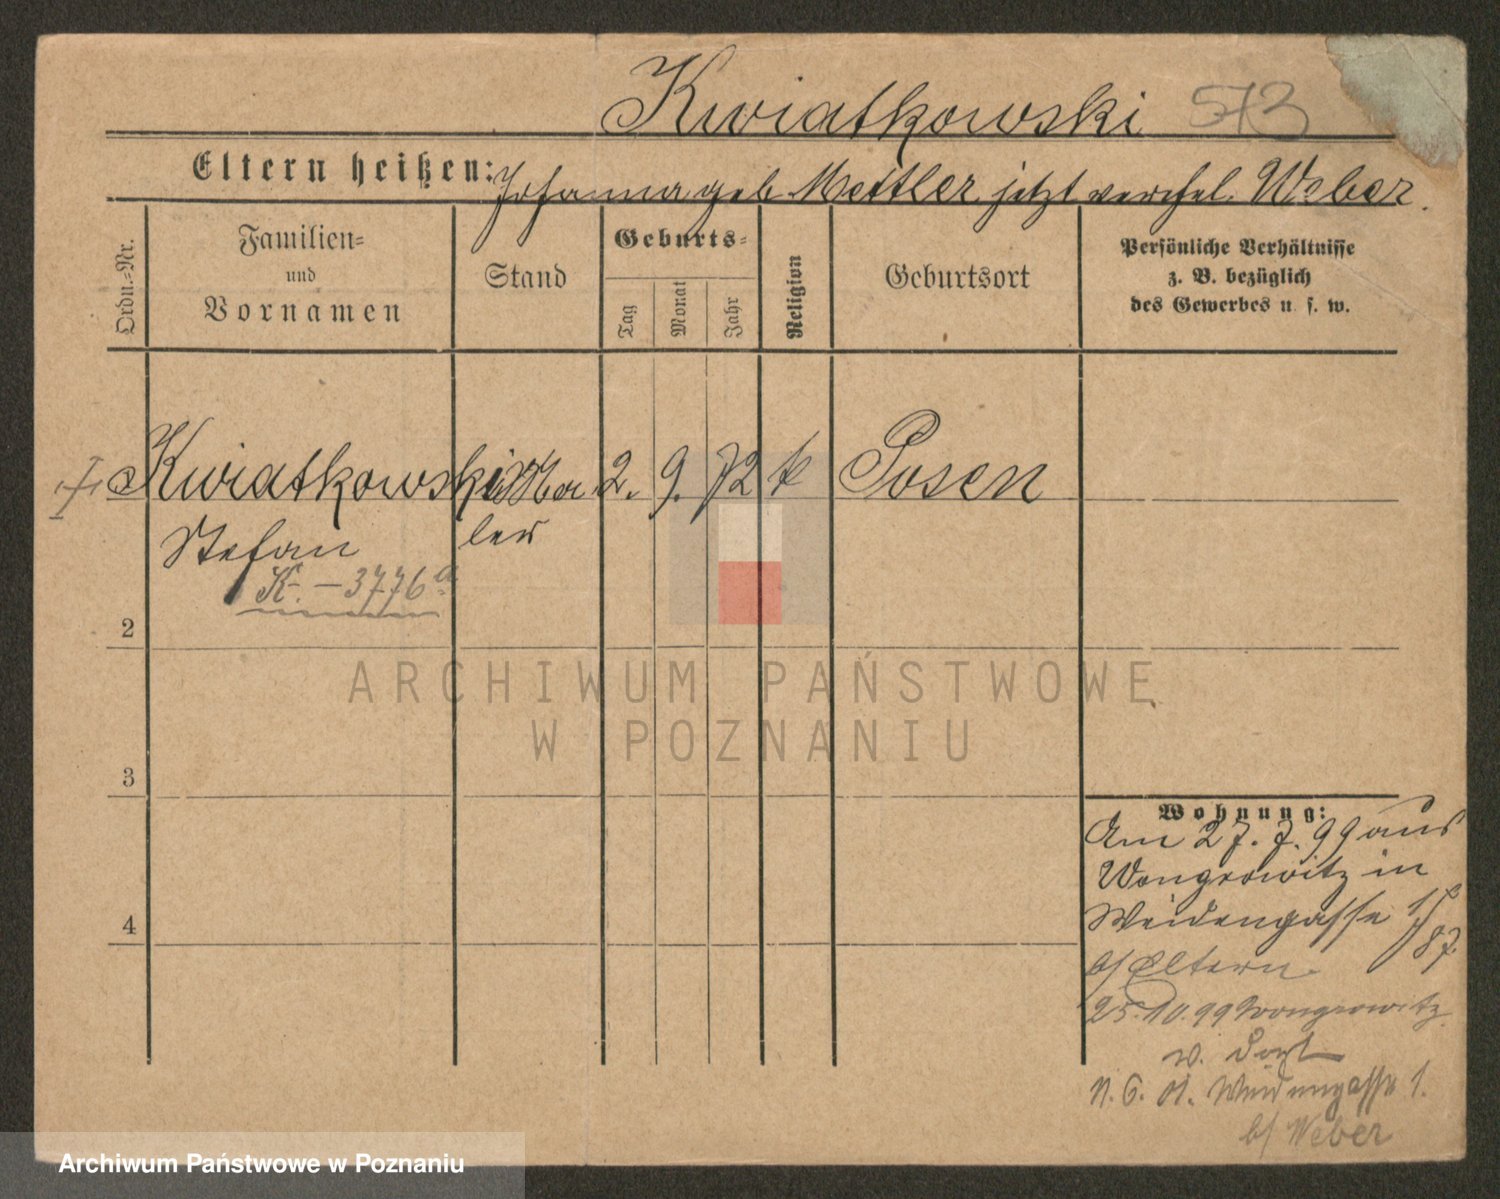 Kwiatkowski 573
Eltern heißen: Johanna geb. Mettler jetzt verehel. Weber.
Ordn.=Nr.
Familien=
und
Vornamen
Stand
Geburts=
Tag
Monat
Jahr
Religion
Geburtsort
Persönliche Verhältnisse
z. B. bezüglich
des Gewerbes u. s. w.
Kwiatkowski Ma 2. 9. 72 k Posen
Stefan ler
K. – 3776a
2
3
4
Wohnung:
Am 27. 7. 99 aus
Wongrowitz in
Weidengasse 1/87
b/ Eltern.
25. 10. 99 Wongrowitz
w. dort
11. 6. 01. Weidengasse 1.
b/ Weber
ARCHIWUM PAŃSTWOWE
W POZNANIU
Archiwum Państwowe w Poznaniu